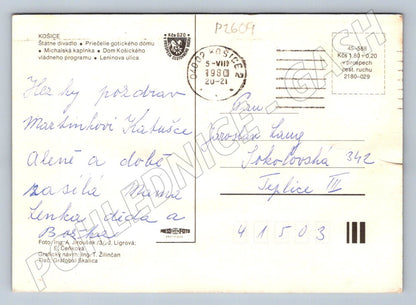 P2609
KOŠICE
Štátne divadlo • Priečelie gotického dómu
• Michalská kaplnka • Dom Košického
vládneho programu • Leninova ulica
Kčs 0,20
04002 KOŠICE 2
5-VIII
1980
20-21
45-588
Kčs 1,80 + 0,20
v prospech
cest. ruchu
2180-029
Hezky pozdrav
Martinkovi Katušce
Aleně a době
zasílá Mama
Lenka, děda a
Boženka
Pan
Jaroslav Lang
Sokolovská 342
Teplice III
41503
Foto: Ing. A. Jiroušek (3), J. Ligrová,
E. Čenková
Grafický návrh: Ing. T. Žilinčan
Tlač: Grafobal Skalica
PRESSFOTO
POHLEDNICE-GASH